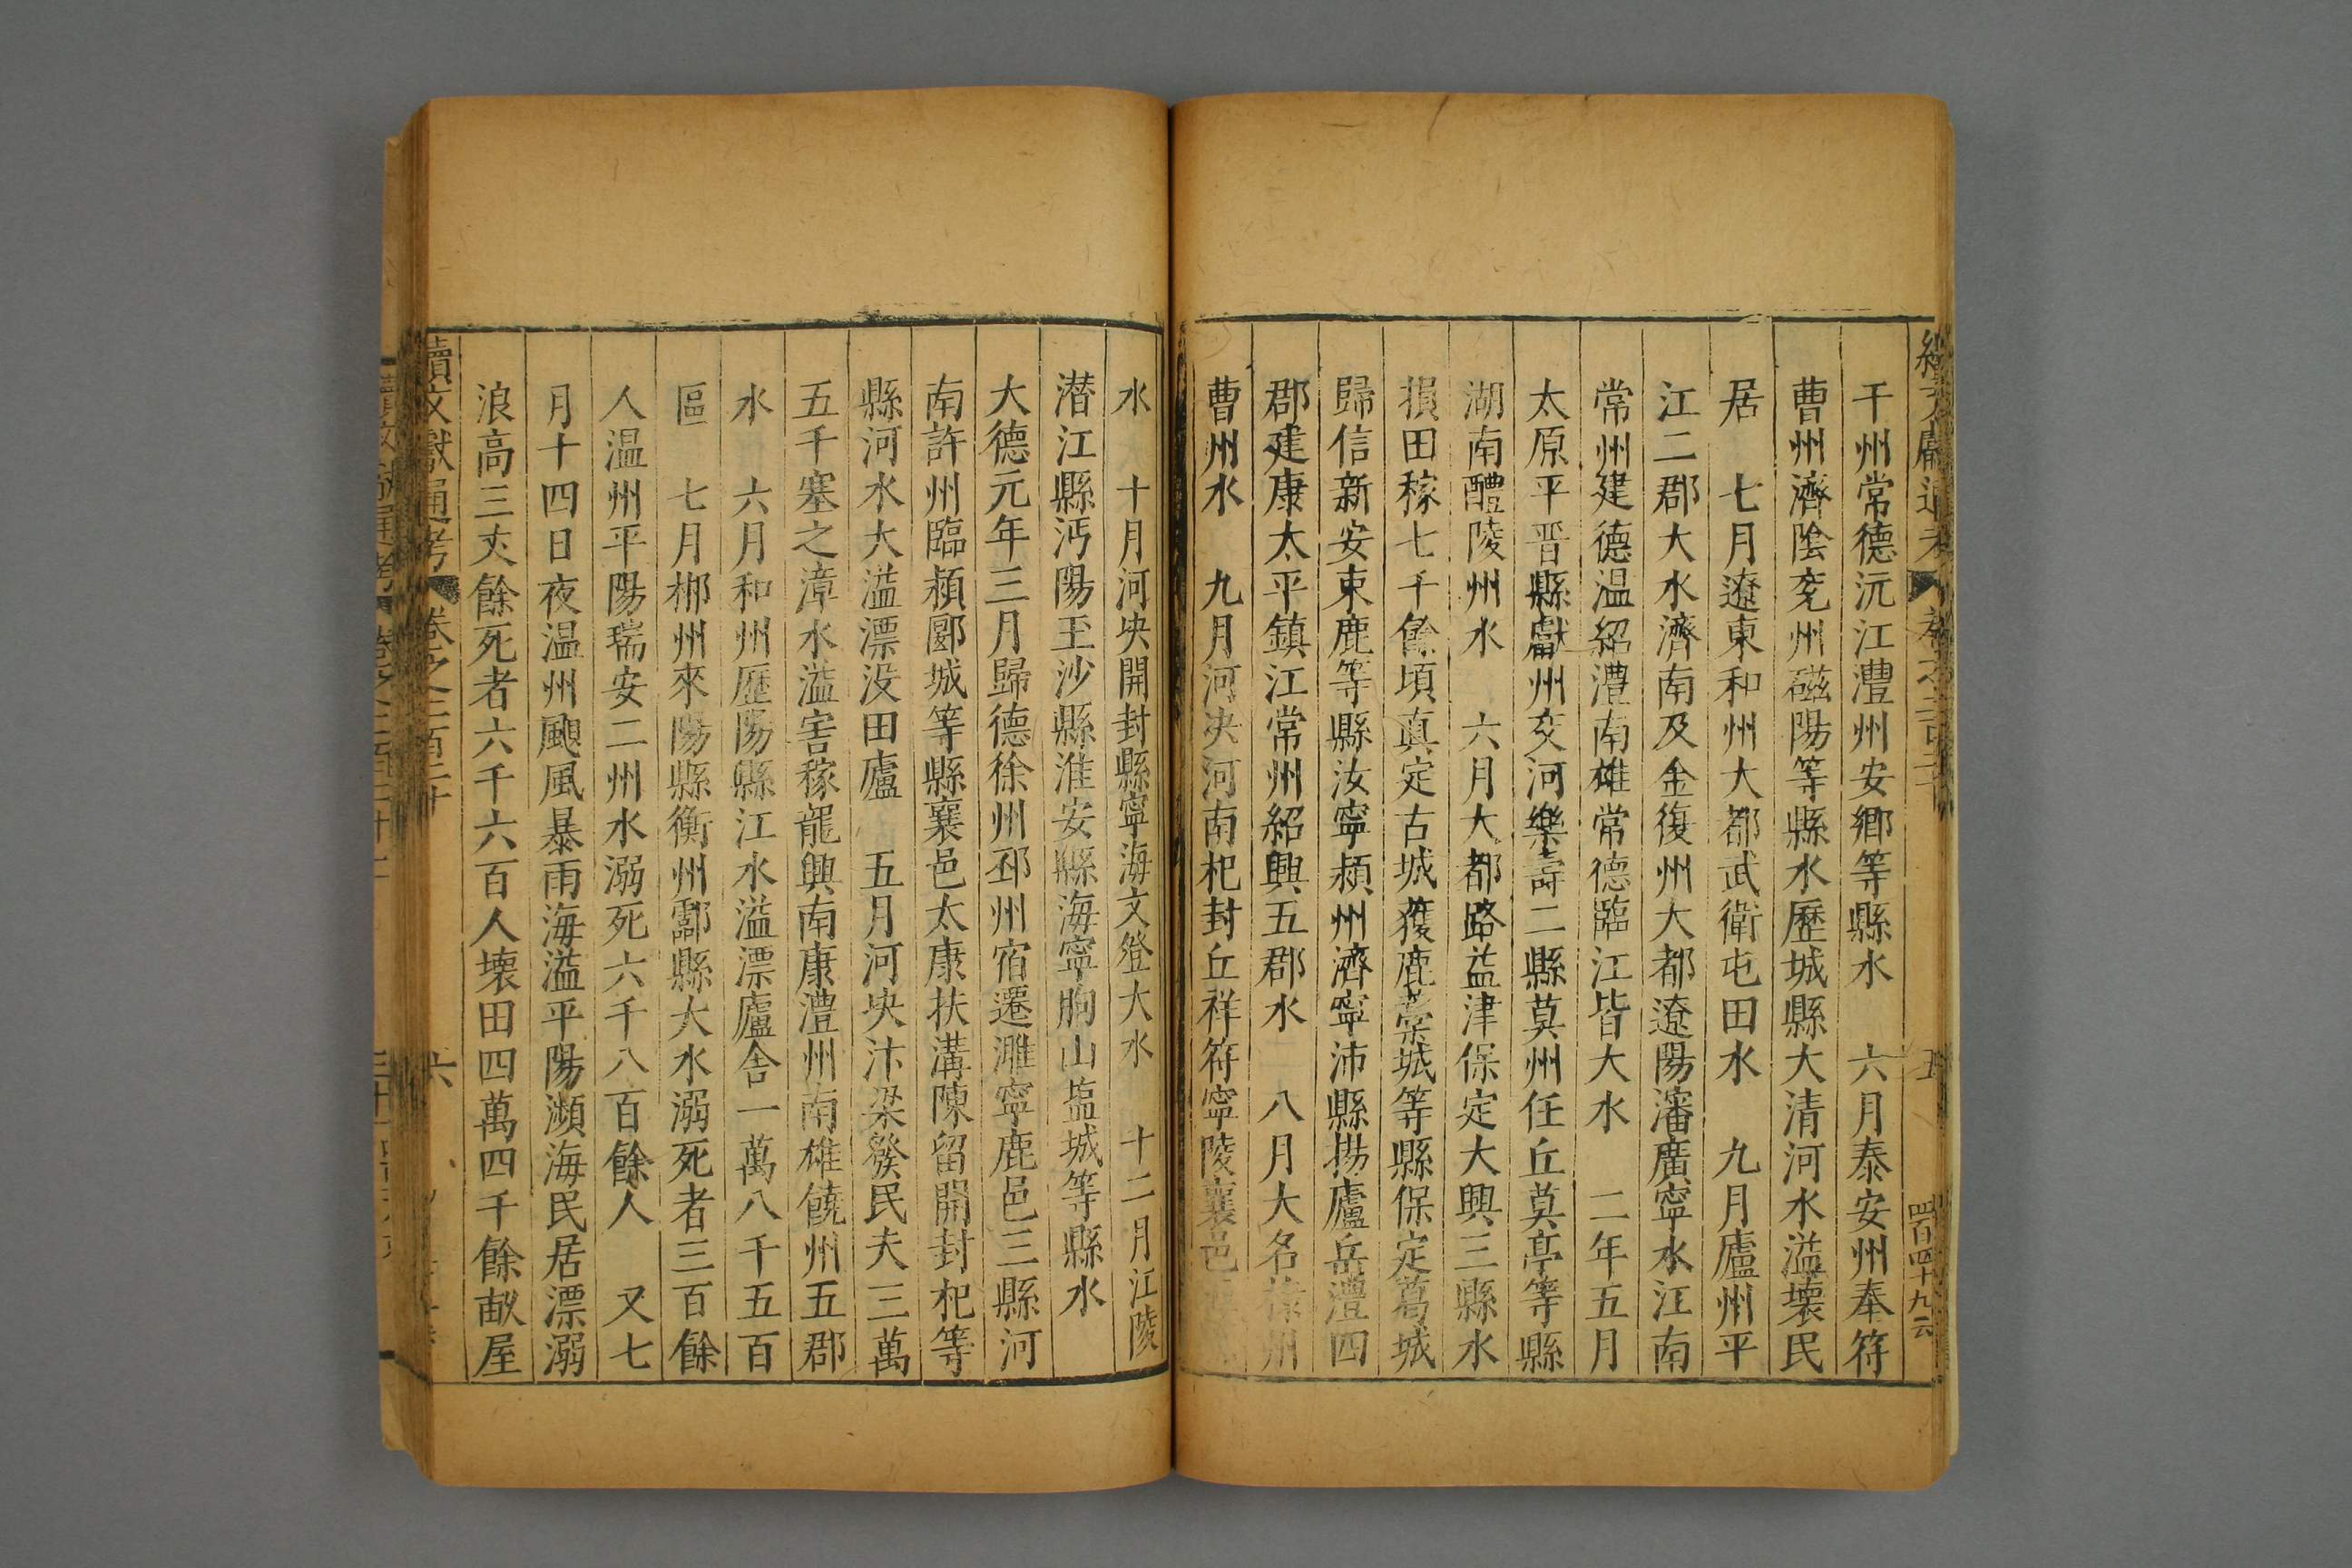 千州常德沅江灃州安鄉等縣水　六月泰安州奉符
曹州濟陰兖州磁陽等縣水歷城縣大清河水溢壊民
居　七月遼東和州大都武衛屯田水　九月廬州平
江二郡大水濟南及金復州大都遼陽瀋廣寧水江南
常州建德温紹澧南雄常德臨江皆大水　二年五月
太原平晋縣獻州交河樂壽二縣莫州任丘莫亭等縣
湖南醴陵州水　六月大都路益津保定大興三縣水
損田稼七千餘頃真定古城獲鹿藁城等縣保定葛城
歸信新安束鹿等縣汝寧潁州濟寧沛縣揚廬岳澧四
郡建康太平鎮江常州紹興五郡水　八月大名棣州
曹州水　九月河決河南杞封丘祥符寧陵襄邑
水　十月河决開封縣寧海文登大水　十二月江陵
潜江縣沔陽玉沙縣淮安縣海寧朐山塩城等縣水
大德元年三月歸德徐州邳州宿遷濉寧鹿邑三縣河
南許州臨潁郾城等縣襄邑太康扶溝陳留開封杞等
縣河水大溢漂没田廬　五月河决汴梁發民夫三萬
五千塞之漳水溢害稼龍興南康澧州南雄饒州五郡
水　六月和州歷陽縣江水溢漂廬舍一萬八千五百
區　七月郴州來陽縣衡州酃縣大水溺死者三百餘
人温州平陽瑞安二州水溺死六千八百餘人　又七
月十四日夜温州颶風暴雨海溢平陽瀕海民居漂溺
浪高三丈餘死者六千六百人壊田四萬四千餘畝屋
續文獻通考　卷之二百二十　六